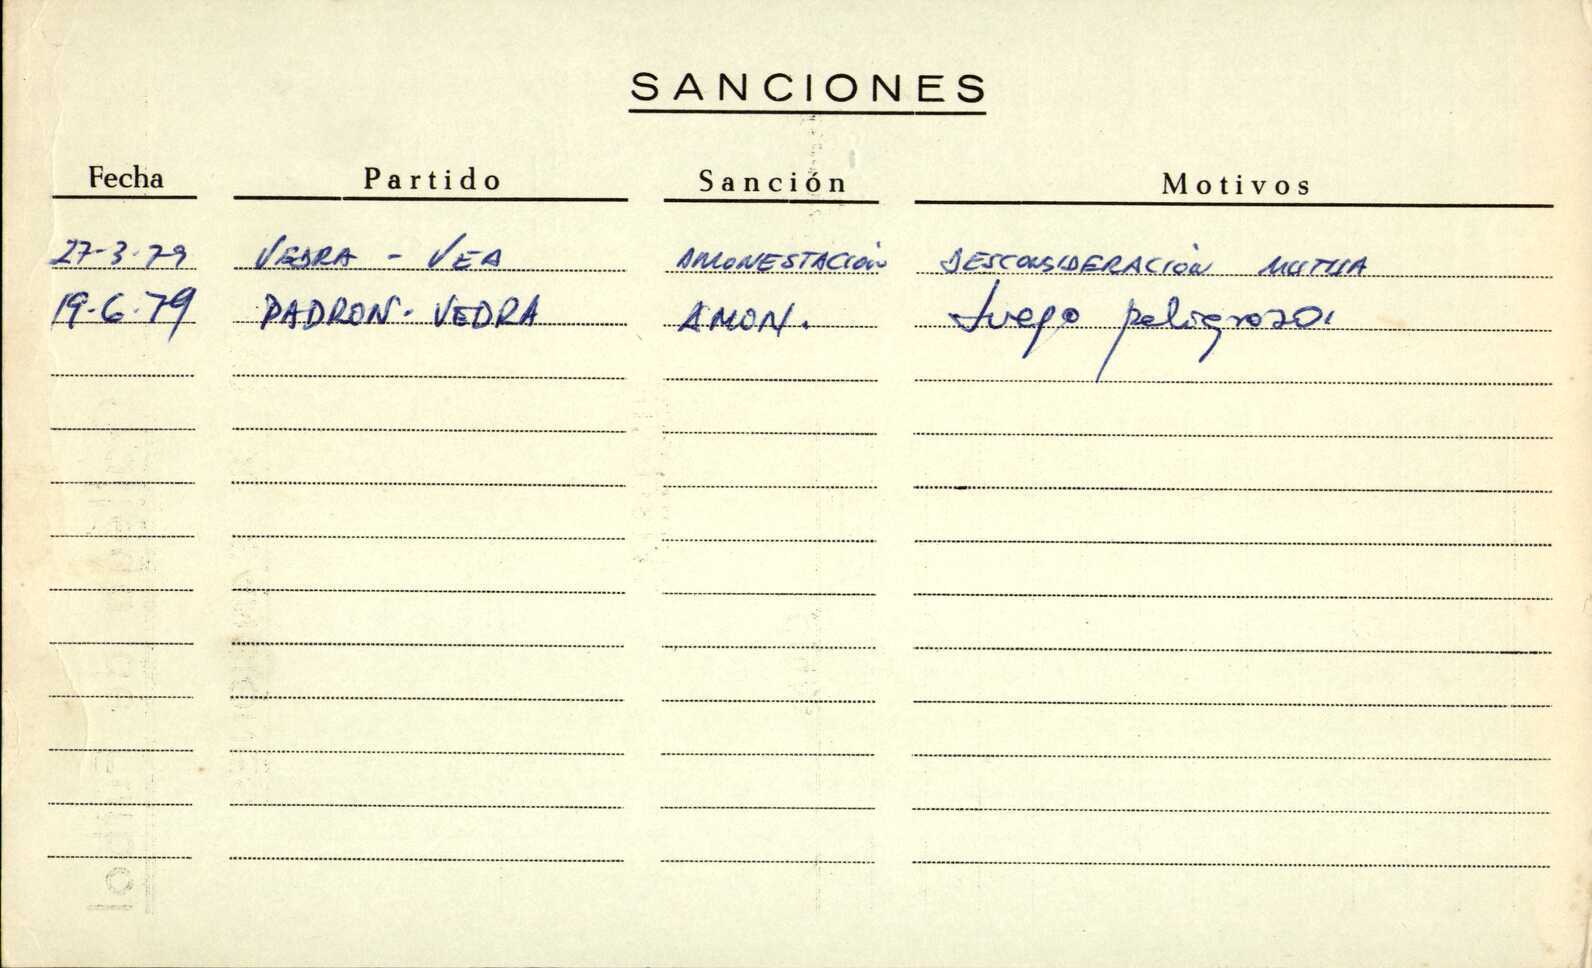 SANCIONES
Fecha Partido Sanción Motivos
27-3-79 VEDRA - VEA AMONESTACIÓN DESCONSIDERACIÓN MUTUA
19-6-79 PADRON - VEDRA AMON. Juego peligroso.